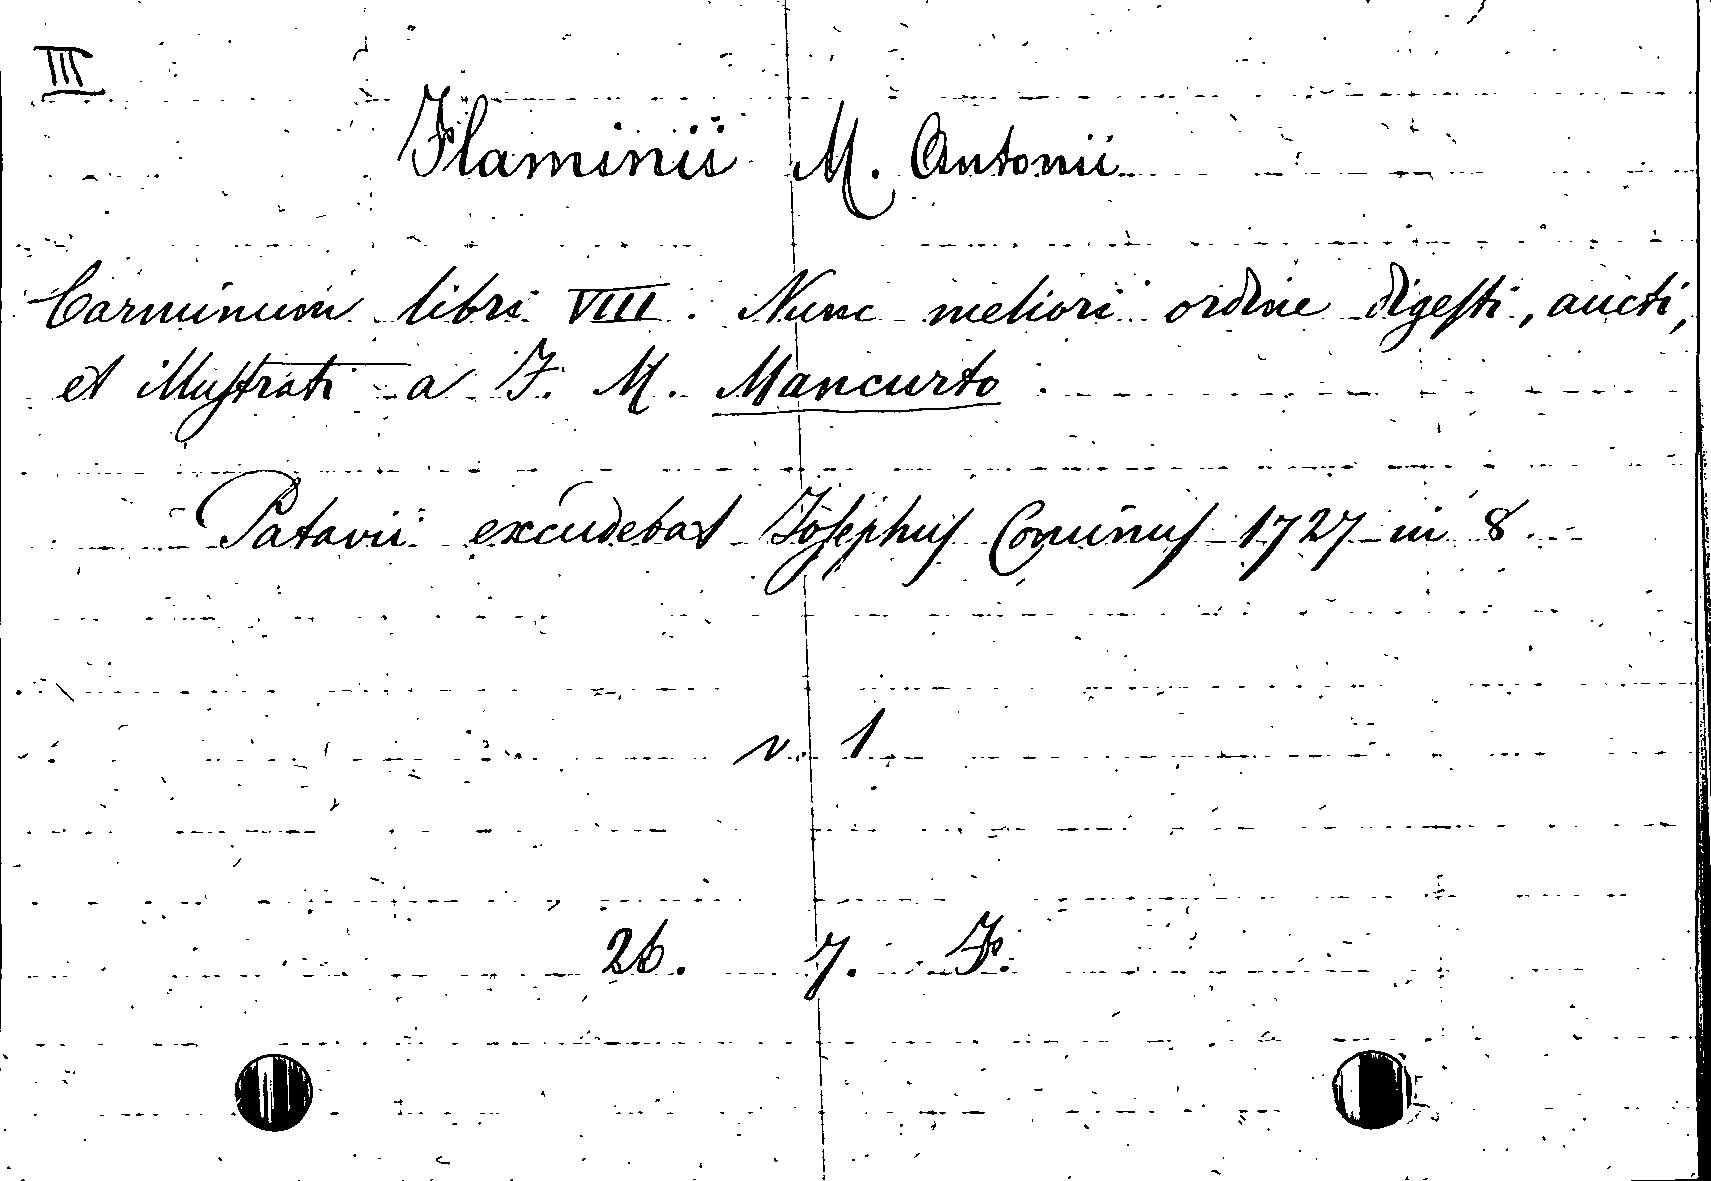 III
Flaminii M. Antonii
Carminum libri VIII. Nunc meliori ordine digesti, aucti,
et illustrati a F. M. Mancurto.
Patavii excudebat Josephus Cominus 1727 in 8.
v. 1
26. 7. F.